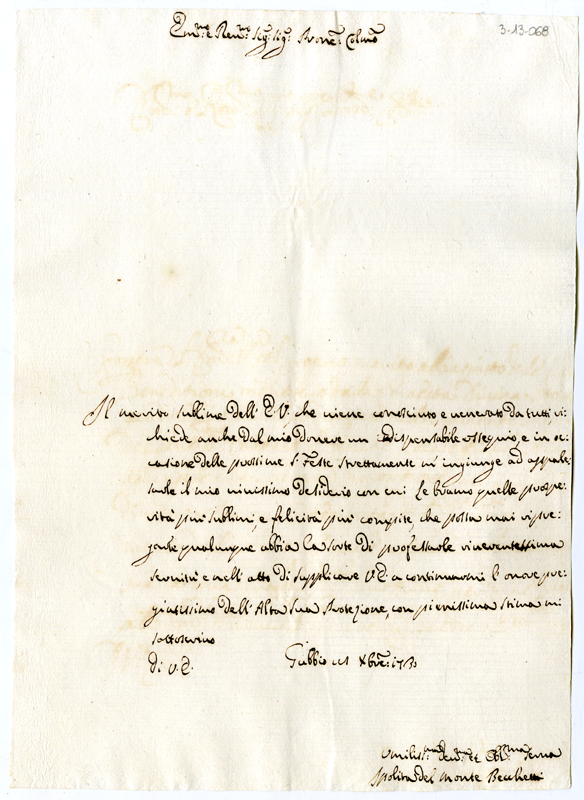 3-13-068
Em.mo e Rev.mo Sig.r Sig.r Pron.e Col.mo
Il merito sublime dell' E.V. che viene conosciuto e venerato da tutti, ri-
chiede anche dal mio dovere un indispensabile ossequio, e in oc-
casione delle prossime S. Feste strettamente m' ingiunge ad appale-
sarle il mio vivissimo desiderio con cui Le bramo quelle prospe-
rità più sublimi, e felicità più compite, che possa mai vipre-
garle qualunque abbia la sorte di professarle riverentissima
servitù, e nell' atto di supplicare V.E. a continuarmi l' onore pre-
giatissimo dell' Alta Sua Protezione, con pienissima stima mi
sottoscrivo
Di V.E. Gubbio Xbre: 1730
Umiliss.ma Dev.ma et Obl.ma Serva
Ipolita del Monte Becchetti